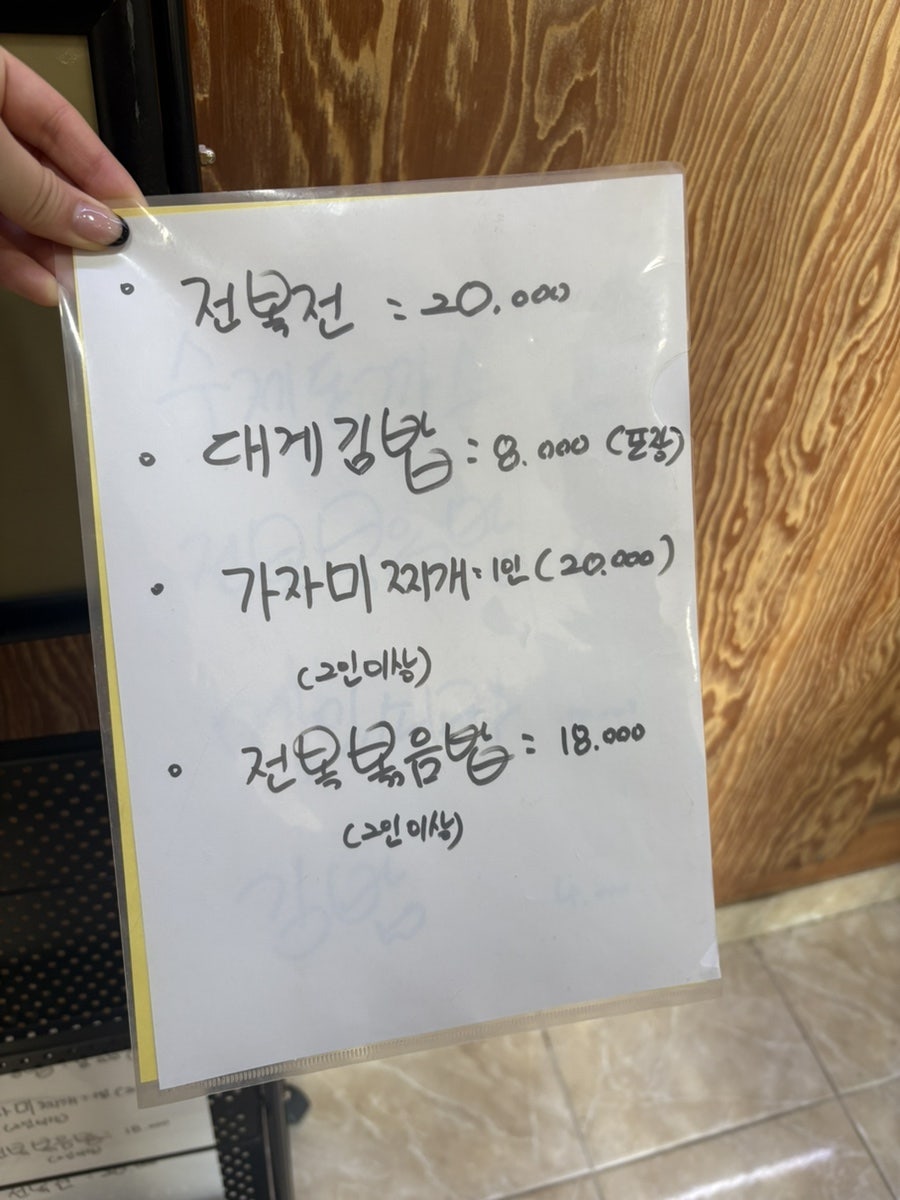 • 전복전 : 20.000
• 대게김밥 : 8.000 (포장)
• 가자미찌개 : 1인 (20.000)
(2인이상)
• 전복볶음밥 : 18.000
(2인이상)